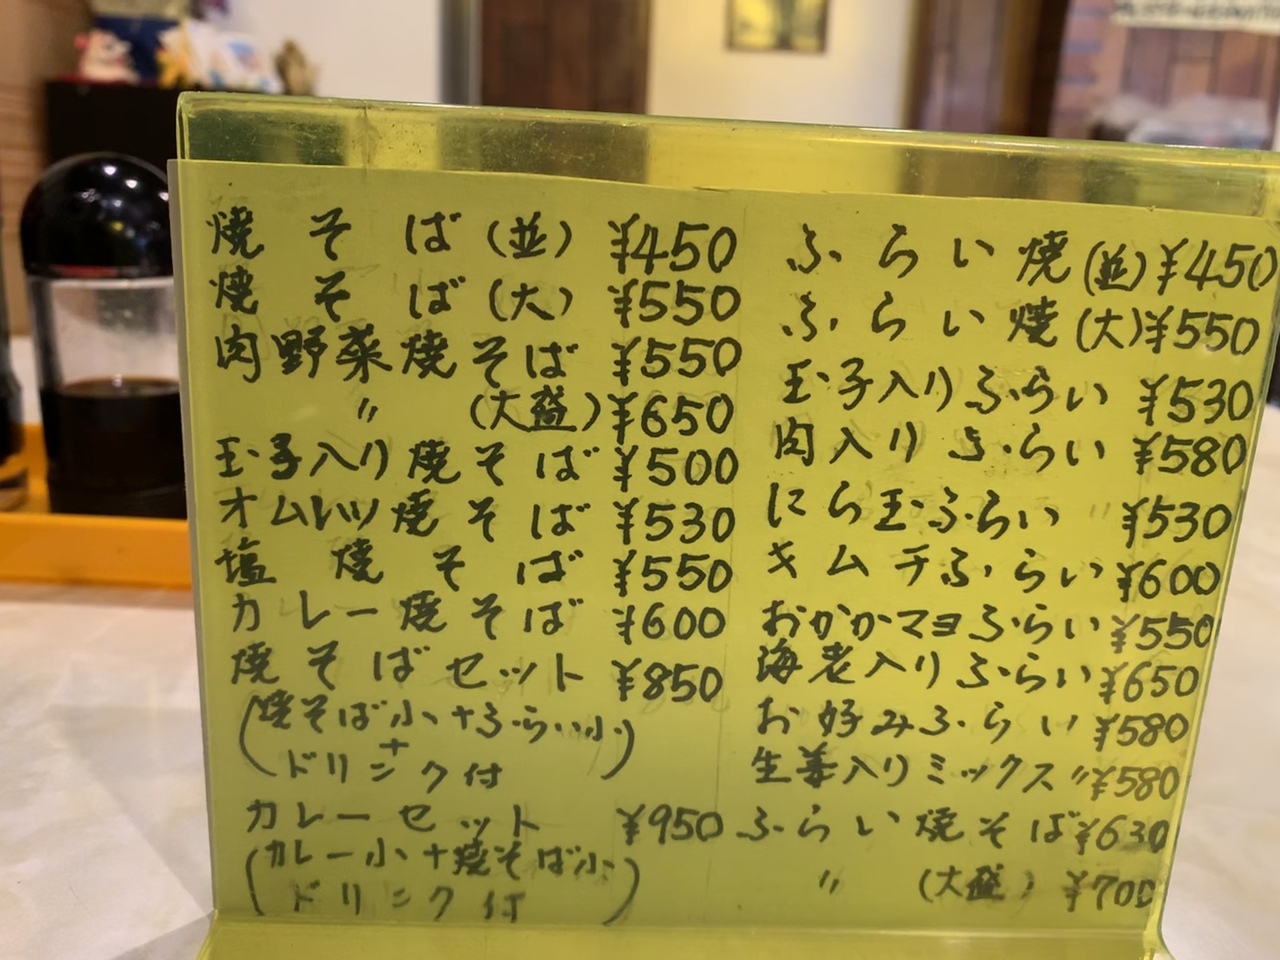 焼そば(並) ¥450
焼そば(大) ¥550
肉野菜焼そば ¥550
〃 (大盛) ¥650
玉子入り焼そば ¥500
オムレツ焼そば ¥530
塩焼そば ¥550
カレー焼そば ¥600
焼そばセット ¥850
(焼そば小+ふらい小
+
ドリンク付)
カレーセット ¥950
(カレー小+焼そば小
ドリンク付)
ふらい焼(並) ¥450
ふらい焼(大) ¥550
玉子入りふらい ¥530
肉入りふらい ¥580
にら玉ふらい ¥530
キムチふらい ¥600
おかかマヨふらい ¥550
海老入りふらい ¥650
お好みふらい ¥580
生姜入りミックス〃 ¥580
ふらい焼そば ¥630
〃 (大盛) ¥700